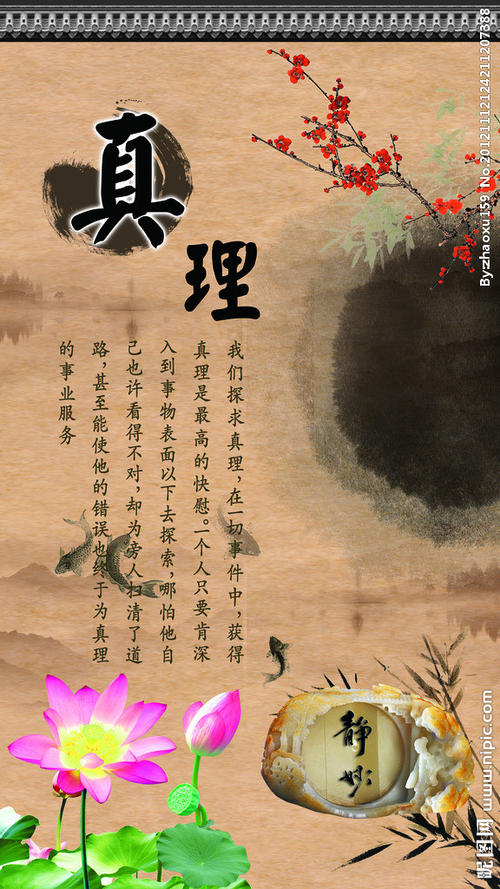 真理
我们探求真理，在一切事件中，获得
真理是最高的快慰。一个人只要肯深
入到事物表面以下去探索，哪怕他自
己也许看得不对，却为旁人扫清了道
路，甚至能使他的错误也终于为真理
的事业服务
静妙
By:zhaoxu159 No.20121112124211207388
昵图网 www.nipic.com